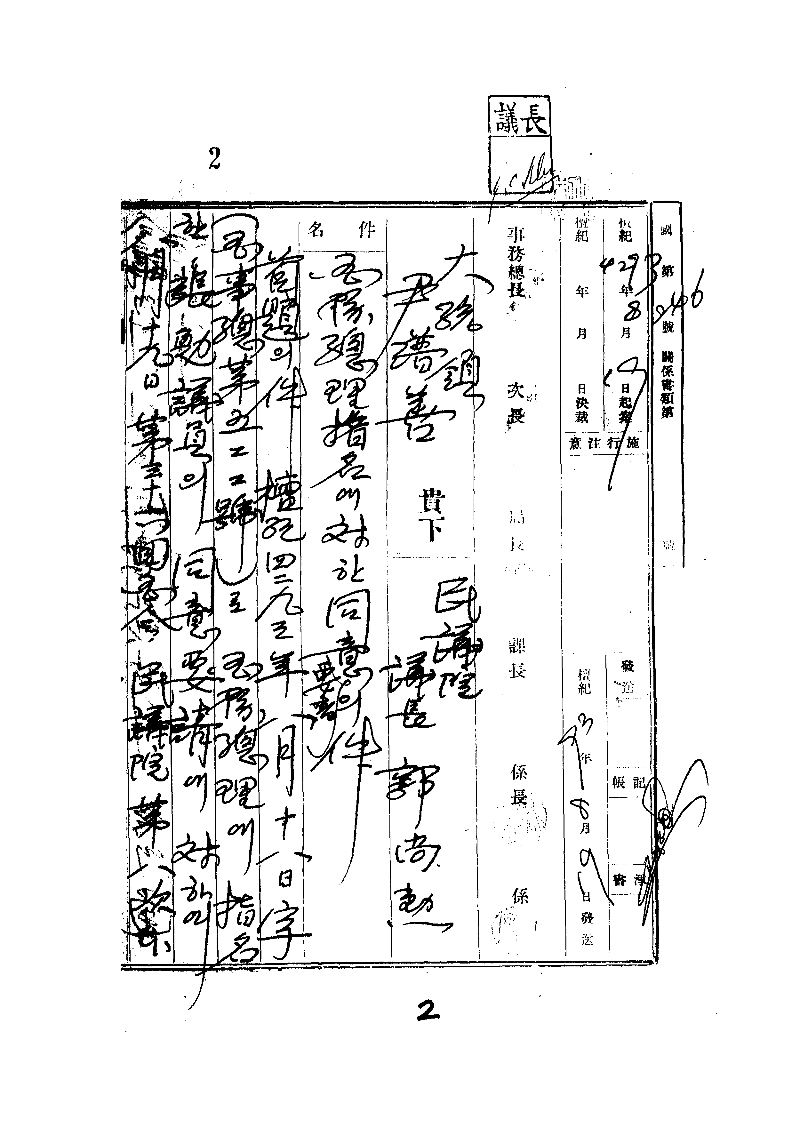 2
議長
國 第 246 號 關係書類第 號
檀紀 4293年 8月 19日起案
檀紀 年 月 日決裁
施行注意
發送
檀紀 93年 8月 19日發送
記帳
淨書
事務總長
次長
局長
課長
係長
係
大統領
尹潽善 貴下
民議院
議長 郭尚勳
件名
國務總理指名에 対한 同意要請의 件
首題의 件 檀紀四二九三年 八月十八日字
國事總第五二二號로 國務總理에 指名
한 張勉議員의 同意要請에 対하여
今 十九日 第三十六回國會 民議院 第八次本
2